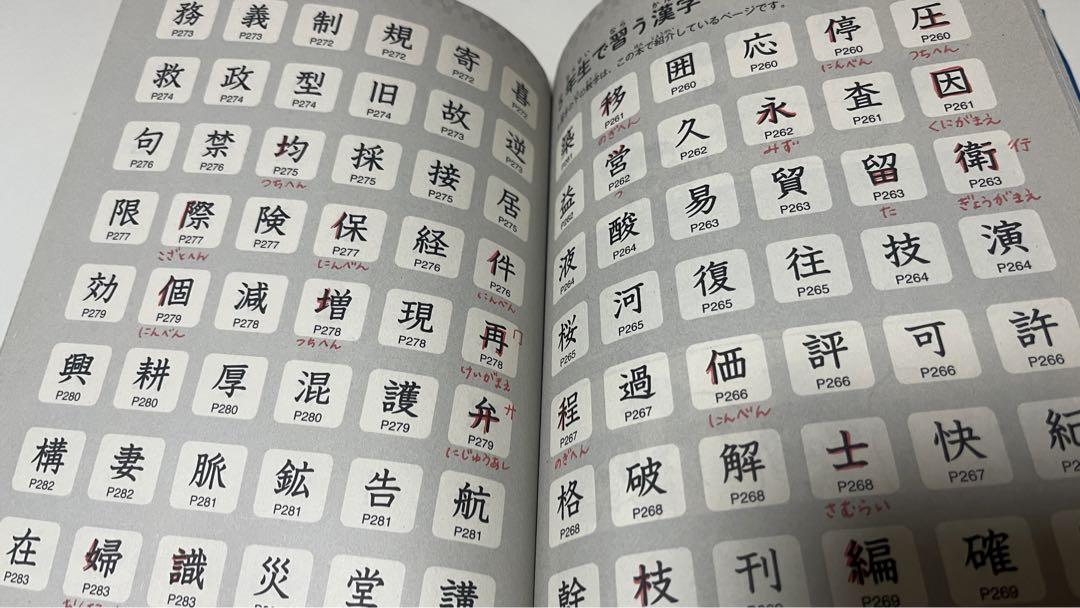 年生で習う漢字
かん
の数字は、この本で紹介しているページです。
圧 停 応 囲 移
P260 P260 P260 P260 P261 P261
つちへん にんべん のぎへん
因 査 永 久 営 益
P261 P261 P262 P262 P262 P262
くにがまえ みず つ
衛 留 貿 易 酸 液
行
P263 P263 P263 P263 P264 P264
ぎょうがまえ た
演 技 往 復 河 桜
P264 P264 P265 P265 P265 P265
許 可 評 価 過 程
P266 P266 P266 P266 P267 P267
にんべん のぎへん
快 士 解 破 格
P267 P268 P268 P268 P268
さむらい
確 編 刊 枝 幹
P269 P269
喜 寄 規 制 義 務
P272 P272 P272 P272 P273 P273
逆 故 旧 型 政 救
P273 P274 P274 P274 P274
居 接 採 均 禁 句
P275 P275 P275 P275 P276 P276
つちへん
件 経 保 険 際 限
P276 P276 P277 P277 P277 P277
にんべん にんべん こざとへん
再 現 増 減 個 効
冂
P278 P278 P278 P278 P279 P279
けいがまえ つちへん にんべん
弁 護 混 厚 耕 興
廾
P279 P279 P280 P280 P280 P280
にじゅうあし
航 告 鉱 脈 妻 構
P281 P281 P281 P281 P282 P282
講 堂 災 識 婦 在
P283 P283 P283